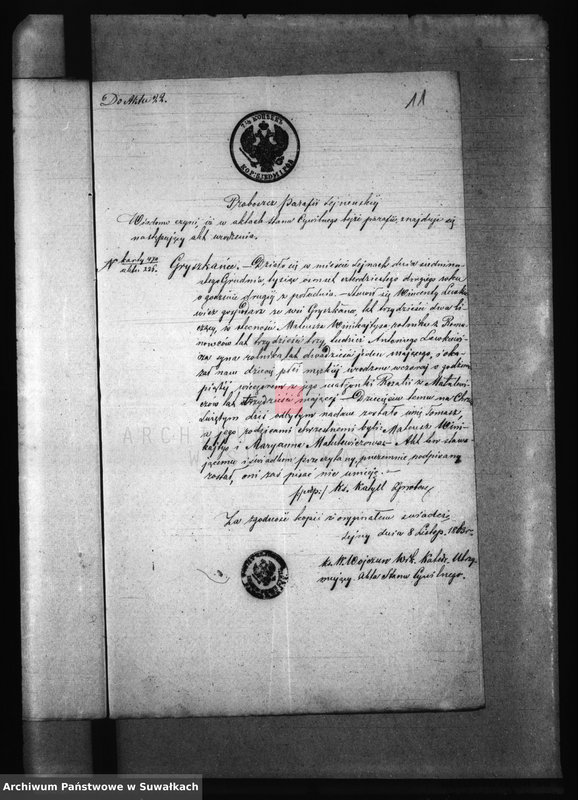 Do Aktu 22.
11
7½ KOPIEEK
KOP.
Proboszcz Parafii Sejneńskiy
Wiadomo czyni, iż w aktach stanu Cywilnego tejże parafii, znajduje się
następujący akt urodzenia.
N karty 430
aktu 225.
Gryszkańce. — Działo się w mieście Sejnach dnia siedmna-
stego Grudnia, tysiąc ośmset czterdziestego drugiego roku
o godzinie drugiy z południa. — Stawił się Wincenty
gospodarz ze wsi Gryszkańc, lat trzydzieści dwa li-
czący, w obecności Mateusza rolnika z
lat trzydzieści trzy, tudzież Antoniego
syna rolnika, lat dwadzieścia jeden mającego, i oka-
zał nam dziecię płci męskiey urodzone wczoray o godzinie
piątey wieczorem z jego małżonki Rozalii z
lat trzydzieści mającey. — Dziecięciu temu na Chrzcie
Świętym dziś odbytym nadane zostało imię Tomasz
a jego rodzicami chrzestnemi byli Mateusz
i Maryanna — Akt ten stawa-
jącemu i świadkom przeczytany, przezemnie podpisany
został, oni zaś pisać nie umieją. —
/podp:/ Ks. Kalixt
Za zgodność kopii z oryginałem świadczę
Sejny dnia 8 Listop. 1863 r.
Ks. Wik. Katedr. Utrzy-
mujący Akta Stanu Cywilnego.
Archiwum Państwowe w Suwałkach